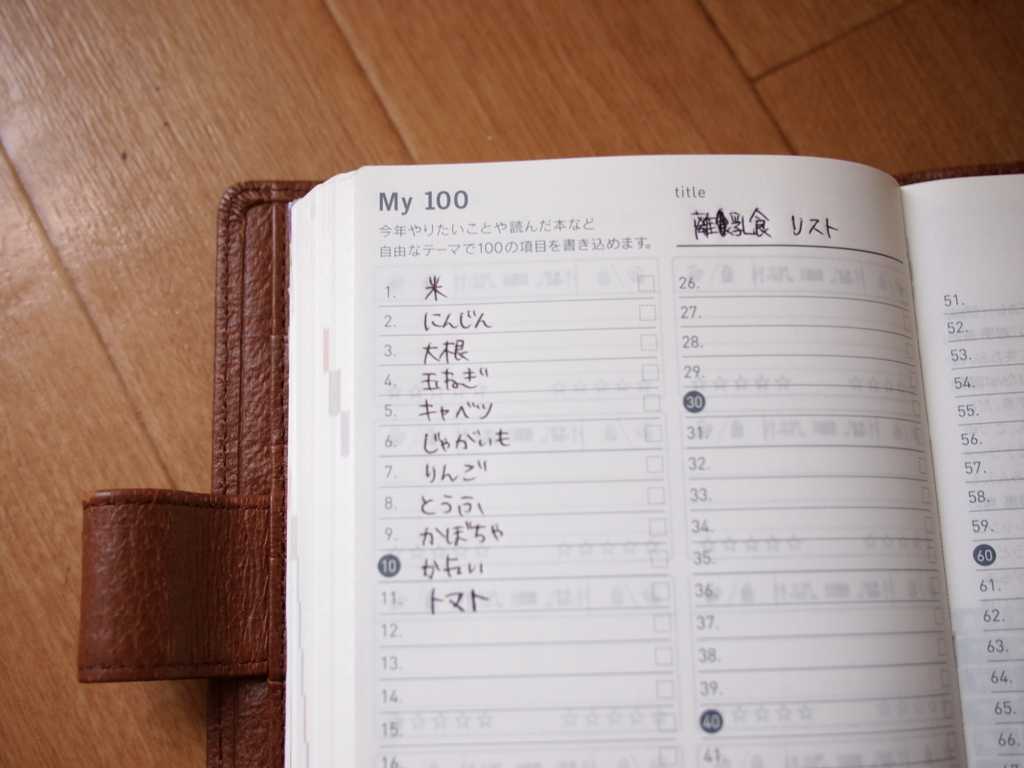 My 100
今年やりたいことや読んだ本など
自由なテーマで100の項目を書き込めます。
title
離乳食 リスト
1. 米
2. にんじん
3. 大根
4. 玉ねぎ
5. キャベツ
6. じゃがいも
7. りんご
8. とうふ
9. かぼちゃ
10 かれい
11. トマト
12.
13.
14.
15.
16.
26.
27.
28.
29.
30
31.
32.
33.
34.
35.
36.
37.
38.
39.
40
41.
51.
52.
53.
54.
55.
56.
57.
58.
59.
60
61.
62.
63.
64.
65.
66.